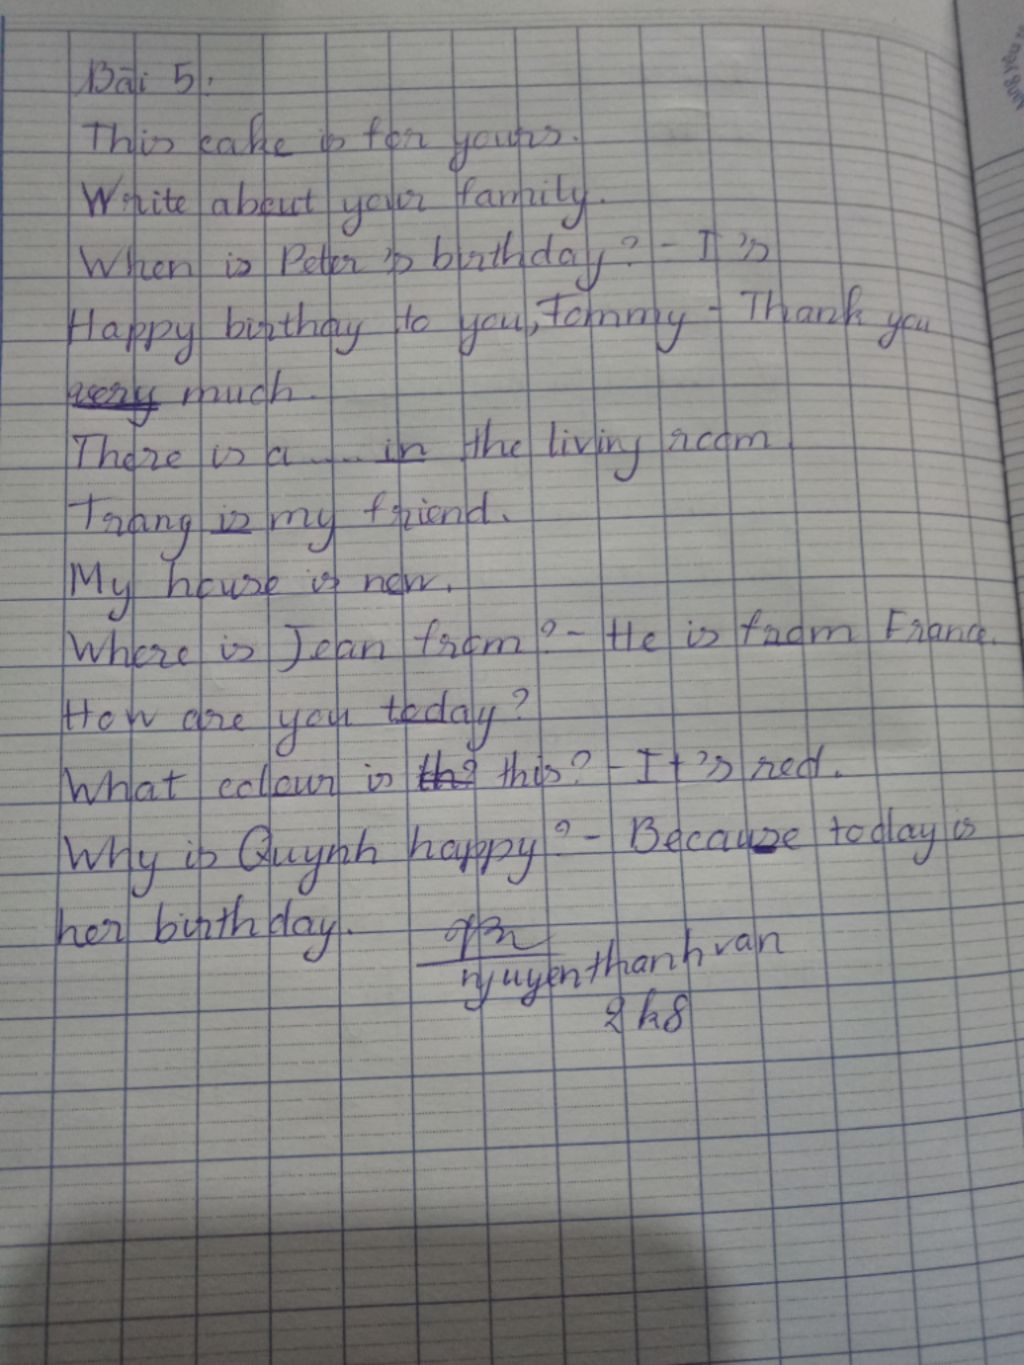 Bài 5:
This cake is for yours.
Write about your family.
When is Peter's birthday? - I's
Happy birthay to you, Tommy - Thank you
very much.
There is a .... in the living room.
Trang is my friend.
My house is new.
Where is Jean from? - He is from France.
How are you today?
What colour is this? - It's red.
Why is Quynh happy? - Because today is
her birthday.
nguyenthanhvan
2k8